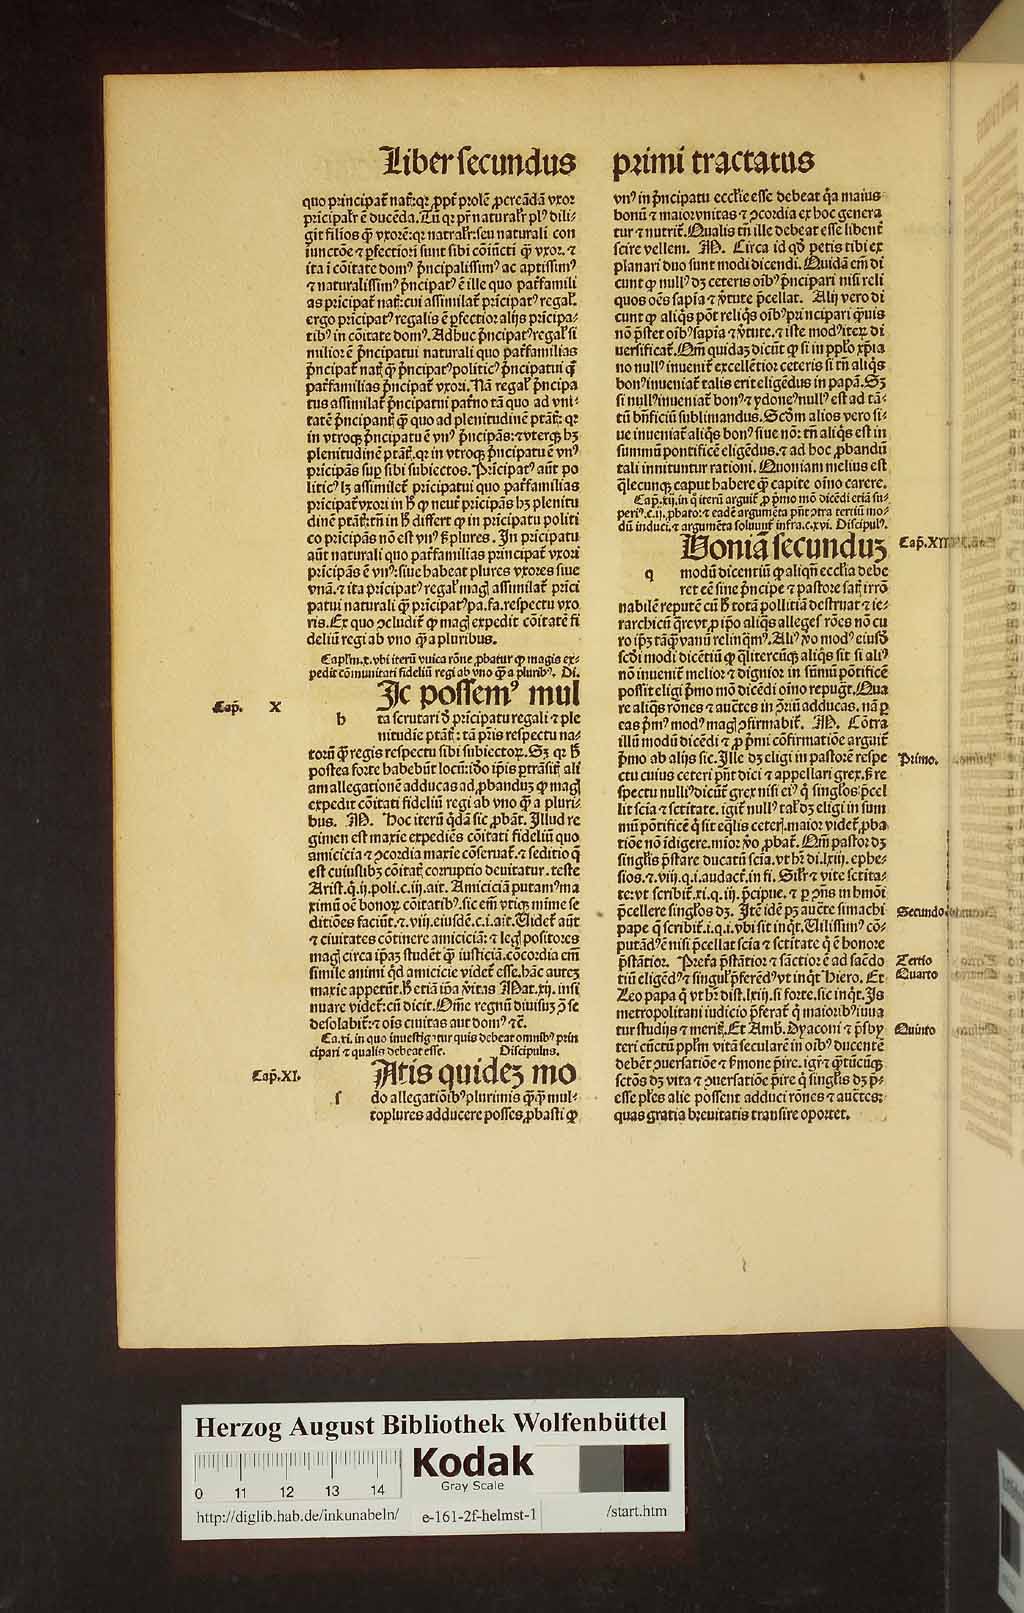 Liber secundus primi tractatus
quo principat̄ nat̄:qꝛ ꝓpt̄ prolē ꝓcreādā vxor
pricipal̄r ē ducēda. Tū qꝛ pr̄ natural̄r plꝰ dili-
git filios q̄ꝫ vxorē:qꝛ natral̄r:seu naturali con
iunctōe ⁊ ꝑfectiori sunt sibi cōiūcti q̄ꝫ vxor. ⁊
ita i cōitate domꝰ p̄ncipalissimꝰ ac aptissimꝰ
⁊ naturalissimꝰ p̄ncipatꝰ ē ille quo pat̄famili
as pricipat̄ nat̄:cui assimilat̄ pricipatꝰ regal̄.
ergo pricipatꝰ regalis ē ꝑfectior alijs pricipa-
tibꝰ in cōitate domꝰ. Adhuc p̄ncipatꝰ regal̄ si
milior ē p̄ncipatui naturali quo pat̄familias
p̄ncipat̄ nat̄ q̄ꝫ p̄ncipatꝰ politicꝰ p̄ncipatui q̄
pat̄familias p̄ncipat̄ vxori. Nā regal̄ p̄ncipa
tus assimilat̄ p̄ncipatui pat̄no tā quo ad vni-
tatē p̄ncipant̄ q̄ꝫ quo ad plenitudinē ptāt̄: qꝛ
in vtroqꝫ p̄ncipatu ē vnꝰ p̄ncipās:⁊ vterqꝫ hꝫ
plenitudinē ptāt̄. qꝛ in vtroqꝫ p̄ncipatu ē vnꝰ
pricipās suꝑ sibi subiectos. Pricipatꝰ aūt po
liticꝰ lꝫ assimilet̄ pricipatui quo pat̄familias
pricipat̄ vxori in h̄ ꝙ neut̄ pricipās hꝫ plenitu
dinē ptāt̄:tn̄ in h̄ differt ꝙ in pricipatu politi
co pricipās nō est vnꝰ ꝫ plures. In pricipatu
aūt naturali quo pat̄familias principat̄ vxori
pricipās ē vnꝰ:siue habeat plures vxores siue
vnā. ⁊ ita pricipatꝰ regal̄ magꝭ assimilat̄ prici
patui naturali q̄ꝫ pricipatꝰ pa.fa.respectu vxo
ris. Ex quo ꝯcludit̄ ꝙ magꝭ expedit cōitatē fi
deliū regi ab vno q̄ꝫ a pluribus.
Capl̄m.x.vbi iterū vnica rōne ꝓbatur ꝙ magis ex-
pedit cōmunitati fideliū regi ab vno q̄ꝫ a pluribꝰ. Di.
Cap. X
Ic possemꝰ mul
h ta scrutari d̄ pricipatu regali ⁊ ple
nitudie ptāt̄: tā pris respectu na-
torū q̄ꝫ regis respectu sibi subiectoꝝ. Sꝫ qꝛ h̄
postea forte habebūt locū:iō ip̄is ptrāsit̄ ali
am allegationē adducas ad ꝓbandū ꝙ magꝭ
expedit cōitati fideliū regi ab vno q̄ꝫ a pluri-
bus. M. Hoc iterū q̄dā sic ꝓbāt. Illud re
gimen est maxie expediēs cōitati fideliū quo
amicicia ⁊ ꝯcordia maxie cōseruat̄. ⁊ seditio q̄
est cuiuslibꝫ cōitat̄ corruptio deuitatur. teste
Arist. q̄. ij. poli. c. iij. ait. Amiciciā putamꝰ ma
ximū oē bonoꝝ cōitatibꝰ. sic em̄ vtiqꝫ mime se
ditiões faciūt. ⁊. viij. eiusdē. c. i. ait. Videt̄ aūt
⁊ ciuitates cōtinere amiciciā: ⁊ legꝭ positores
magꝭ circa ip̄aꝫ studēt q̄ꝫ iusticiā. cōcordia em̄
simile animi q̄d amicicie videt̄ esse. hāc autez
maxie appetūt. h̄ etiā ip̄a v̄itas Mat. xij. insi
nuare videt̄:cū dicit. Om̄e regnū diuisuꝫ ꝯ se
desolabit̄:⁊ oīs ciuitas aut domꝰ ⁊c̄.
Ca.xi. in quo inuestigatur quis debeat omnibꝰ prin
cipari ⁊ qualis debeat esse. Discipulus.
Cap. XI.
Atis quideꝫ mo
s do allegatiōibꝰ plurimis q̄ꝫq̄ꝫ mul-
toplures adducere posses. ꝓbasti ꝙ
vnꝰ in p̄ncipatu eccl̄ie esse debeat q̄a maius
bonū ⁊ maior vnitas ⁊ ꝯcordia ex hoc genera
tur ⁊ nutrit̄. Qualis tn̄ ille debeat esse libent̄
scire vellem. M. Circa id qd̄ petis tibi ex
planari duo sunt modi dicendi. Quidā em̄ di
cunt ꝙ nullꝰ dꝫ ceteris oībꝰ p̄ncipari nisi reli
quos oēs sapīa ⁊ v̄tute p̄cellat. Alij vero di
cunt ꝙ aliq̄s pōt reliq̄s oībꝰ principari q̄uis
nō p̄stet oībꝰ sapīa ⁊ v̄tute. ⁊ iste modꝰ iteꝝ di
uersificat̄. Qm̄ quidaꝫ dicūt ꝙ si in pplō xp̄ia
no nullꝰ inuenit̄ excellētior ceteris si tn̄ aliq̄s
bonꝰ inueniat̄ talis erit eligēdus in papā. Sꝫ
si nullꝰ inueniat̄ bonꝰ ⁊ ydoneꝰ nullꝰ est ad tā-
tū bn̄ficiū sublimandus. Scd̄m alios vero si-
ue inueniat̄ aliq̄s bonꝰ siue nō: tn̄ aliq̄s est in
summū pontificē eligēdus. ⁊ ad hoc ꝓbandū
tali innituntur rationi. Quoniam melius est
q̄lecunqꝫ caput habere q̄ꝫ capite oīno carere.
Cap.xij.in q̄ iterū arguit̄ ꝓ p̄mo mō dicēdi etiā su-
periꝰ.c.ij. ꝓbato:⁊ eadē argumēta pn̄t ꝯtra tertiū mo-
dū induci. ⁊ argumēta soluunt̄ infra.c.xvi. Discipulꝰ.
Cap. XII
Uoniā secunduꝫ
q modū dicentiū ꝙ aliqn̄ eccl̄ia debe
ret eē sine p̄ncipe ⁊ pastore sat̄ irrō
nabilē reputē cū h̄ totā pollitiā destruat ⁊ ie-
rarchicū q̄revt̄ ꝓ ip̄o aliq̄s alleges rōes nō cu
ro ip̄ꝫ tāq̄ꝫ vanū relinq̄mꝰ. Aliꝰ v̄o modꝰ eiusd̄
scd̄i modi dicētiū ꝙ q̄litercūqꝫ aliq̄s sit si aliꝰ
nō inuenit̄ melior ⁊ dignior in sūmū pōtificē
possit eligi p̄mo mō dicēdi oīno repugt̄. Qua
re aliq̄s rōnes ⁊ auc̄tes in ꝯ̄riū adducas. nā ꝑ
eas p̄mꝰ modꝰ magꝭ ꝯfirmabit̄. M. Cōtra
illū modū dicēdi ⁊ ꝓ p̄mi cōfirmatiōe arguit̄
p̄mo ab alijs sic. Ille dꝫ eligi in pastorē respe
Primo.
ctu cuius ceteri pn̄t dici ⁊ appellari grex. ꝫ re
spectu nulliꝰ dicūt̄ grex nisi eiꝰ q̄ singl̄os p̄cel
lit scīa ⁊ sc̄titate. igit̄ nullꝰ tal̄ dꝫ eligi in sum
mū pōtificē q̄ sit eq̄lis ceterꝭ. maior videt̄ ꝓba
tiōe nō īdigere. mīor v̄o ꝓbat̄. Qm̄ pastor dꝫ
singl̄is p̄stare ducatū scīa. vt hr̄ di. lxiij. ephe-
sios. ⁊. viij. q. i. audact̄. in fi. Sil̄r ⁊ vite sc̄tita-
te: vt scribit̄. xi. q. iij. p̄cipue. ⁊ ꝑ ꝯn̄s in hmōi
p̄cellere singl̄os dꝫ. Itē idē pꝫ auc̄te simachi
Secundo
pape q̄ scribit̄. i. q. i. vbi sit inq̄t. Vilissimꝰ cō-
putādꝰ ē nisi p̄cellat scīa ⁊ sc̄titate q̄ ē honore
p̄stātior. Pret̄a p̄stātior ⁊ sāctior ē ad sac̄do
Tertio
tiū eligēdꝰ ⁊ singul̄ p̄ferēdꝰ vt inq̄t Hiero. Et
Quarto
Leo papa q̄ vt hr̄ dist. lxiij. si forte. sic inq̄t. Is
metropolitani iudicio p̄ferat̄ q̄ maioribꝰ iuua
tur studijs ⁊ merit̄. Et Amb. Dyaconi ⁊ p̄sby
Quinto
teri cūctū ppl̄m vitā secularē in oībꝰ ducentē
debēt ꝯuersatiōe ⁊ s̄mone p̄ire. igr̄ ⁊ q̄ntūcūqꝫ
sc̄tōs dꝫ vita ⁊ ꝯuersatiōe p̄ire q̄ singl̄is dꝫ p̄-
esse pl̄es alie possent adduci rōnes ⁊ auc̄tes:
quas gratia breuitatis transire oportet.
Herzog August Bibliothek Wolfenbüttel
Kodak
Gray Scale
0 11 12 13 14
http://diglib.hab.de/inkunabeln/ e-161-2f-helmst-1 /start.htm